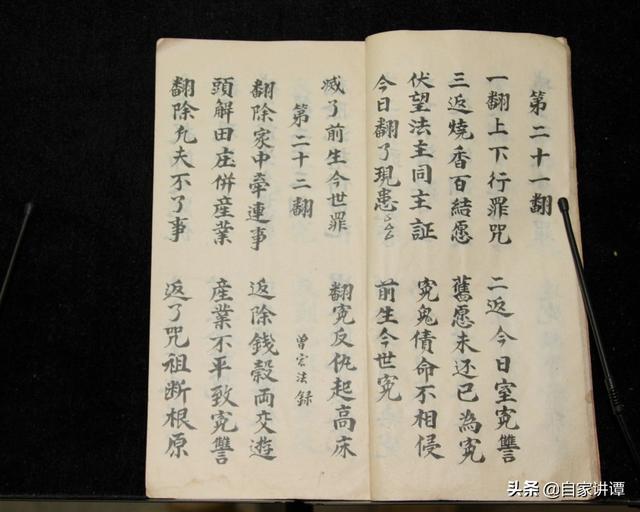 第二十一翻
一翻上下行罪咒 二返今日室寃讐
三返燒香百結愿 舊愿未还已為寃
伏望法主同主証 寃鬼債命不相侵
今日翻了現患 前生今世寃
滅了前生今世罪 翻寃反仇起高床
第二十二翻 曾宏法録
翻除家中牽連事 返除錢穀両交遊
頭解田庄併産業 産業不平致寃讐
翻除九夫不了事 返了咒祖断根原
头条 @自家讲谭